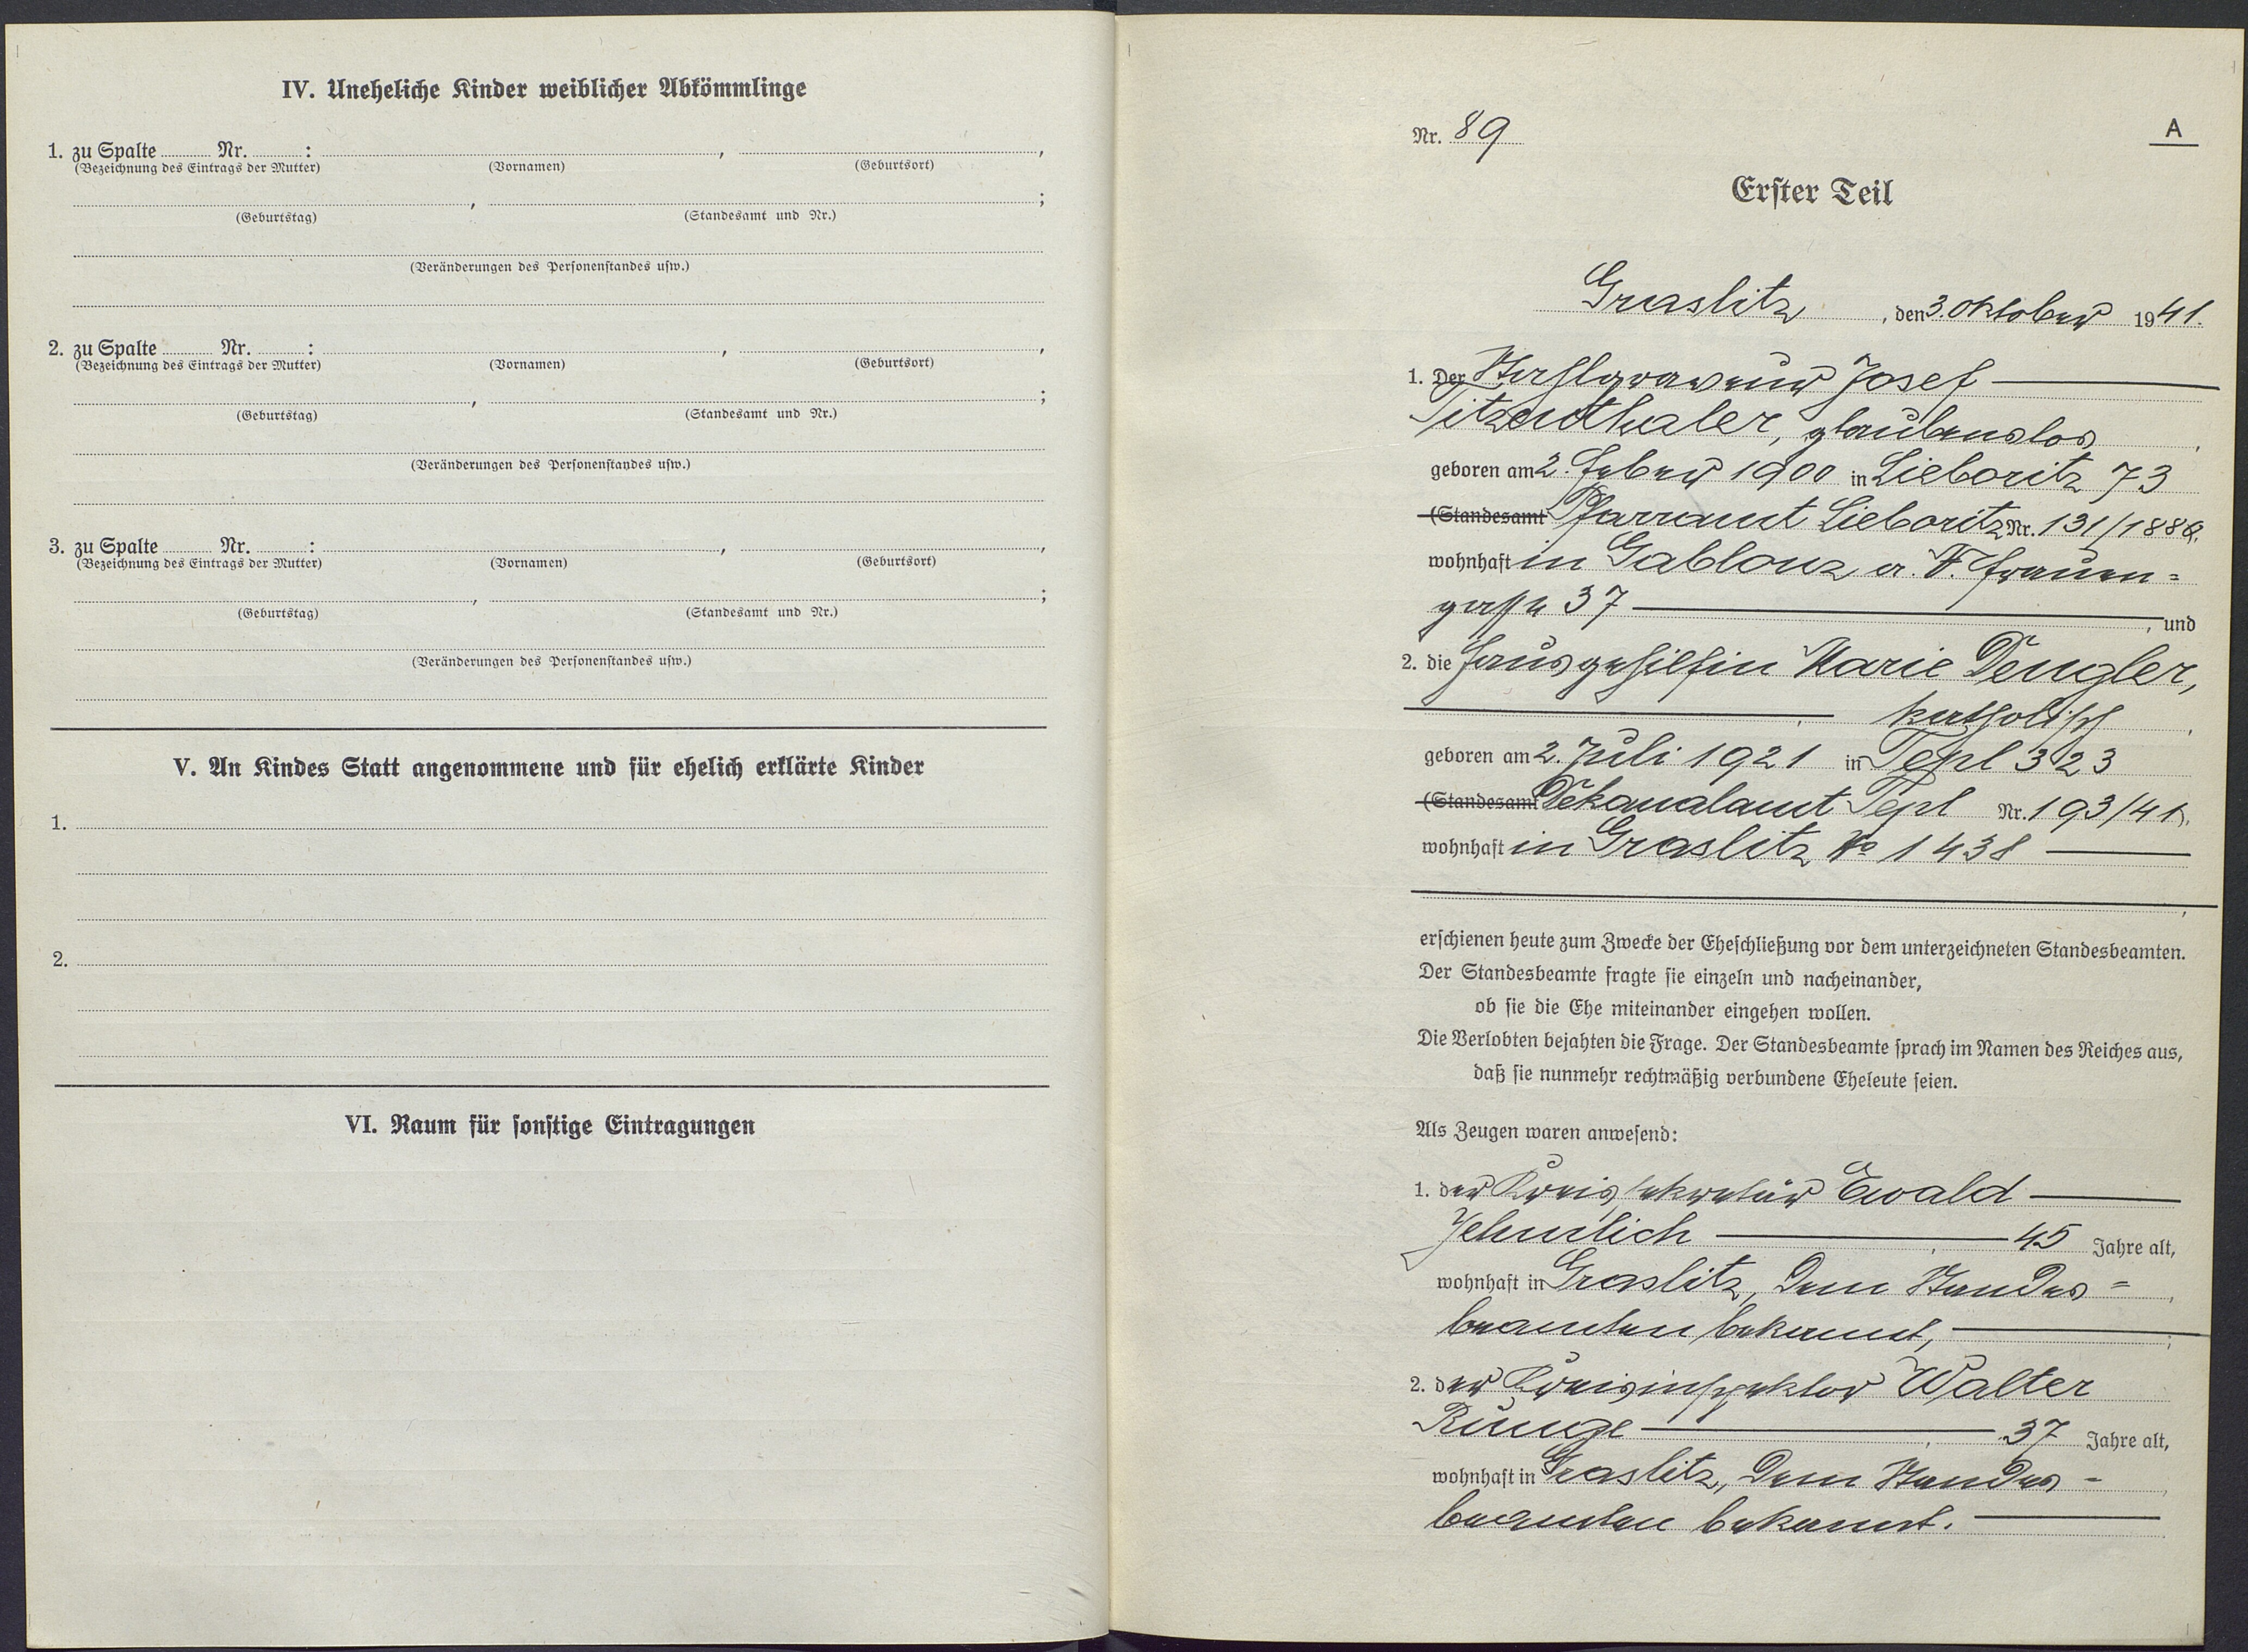 IV. Uneheliche Kinder weiblicher Abkömmlinge
1. zu Spalte ........ Nr. ........ : ........ , ........ ,
(Bezeichnung des Eintrags der Mutter) (Vornamen) (Geburtsort)
........ , ........ ;
(Geburtstag) (Standesamt und Nr.)
(Veränderungen des Personenstandes usw.)
2. zu Spalte ........ Nr. ........ : ........ , ........ ,
(Bezeichnung des Eintrags der Mutter) (Vornamen) (Geburtsort)
........ , ........ ;
(Geburtstag) (Standesamt und Nr.)
(Veränderungen des Personenstandes usw.)
3. zu Spalte ........ Nr. ........ : ........ , ........ ,
(Bezeichnung des Eintrags der Mutter) (Vornamen) (Geburtsort)
........ , ........ ;
(Geburtstag) (Standesamt und Nr.)
(Veränderungen des Personenstandes usw.)
V. An Kindes Statt angenommene und für ehelich erklärte Kinder
1.
2.
VI. Raum für sonstige Eintragungen
Nr. 89
A
Erster Teil
Graslitz, den 3. Oktober 1941.
1. Der Josef —
Titzenthaler, glaubenslos,
geboren am 2. Feber 1900 in Lieboritz 73
(Standesamt Pfarramt Lieboritz Nr. 131/
wohnhaft in Gablonz a. N. Frauen=
gasse 37 —, und
2. die Hausgehilfin Marie Dengler,
—, katholisch,
geboren am 2. Juli 1921 in Tepl 323
(Standesamt Dekanalamt Tepl Nr. 193/41),
wohnhaft in Graslitz No 1438 —
erschienen heute zum Zwecke der Eheschließung vor dem unterzeichneten Standesbeamten.
Der Standesbeamte fragte sie einzeln und nacheinander,
ob sie die Ehe miteinander eingehen wollen.
Die Verlobten bejahten die Frage. Der Standesbeamte sprach im Namen des Reiches aus,
daß sie nunmehr rechtmäßig verbundene Eheleute seien.
Als Zeugen waren anwesend:
1. der Kreissekretär Ewald —
Jehmlich —, 45 Jahre alt,
wohnhaft in Graslitz, dem Standes=,
beamten bekannt, —;
2. der Kreisinspektor Walter
Runge —, 37 Jahre alt,
wohnhaft in Graslitz, dem Standes-,
beamten bekannt. —